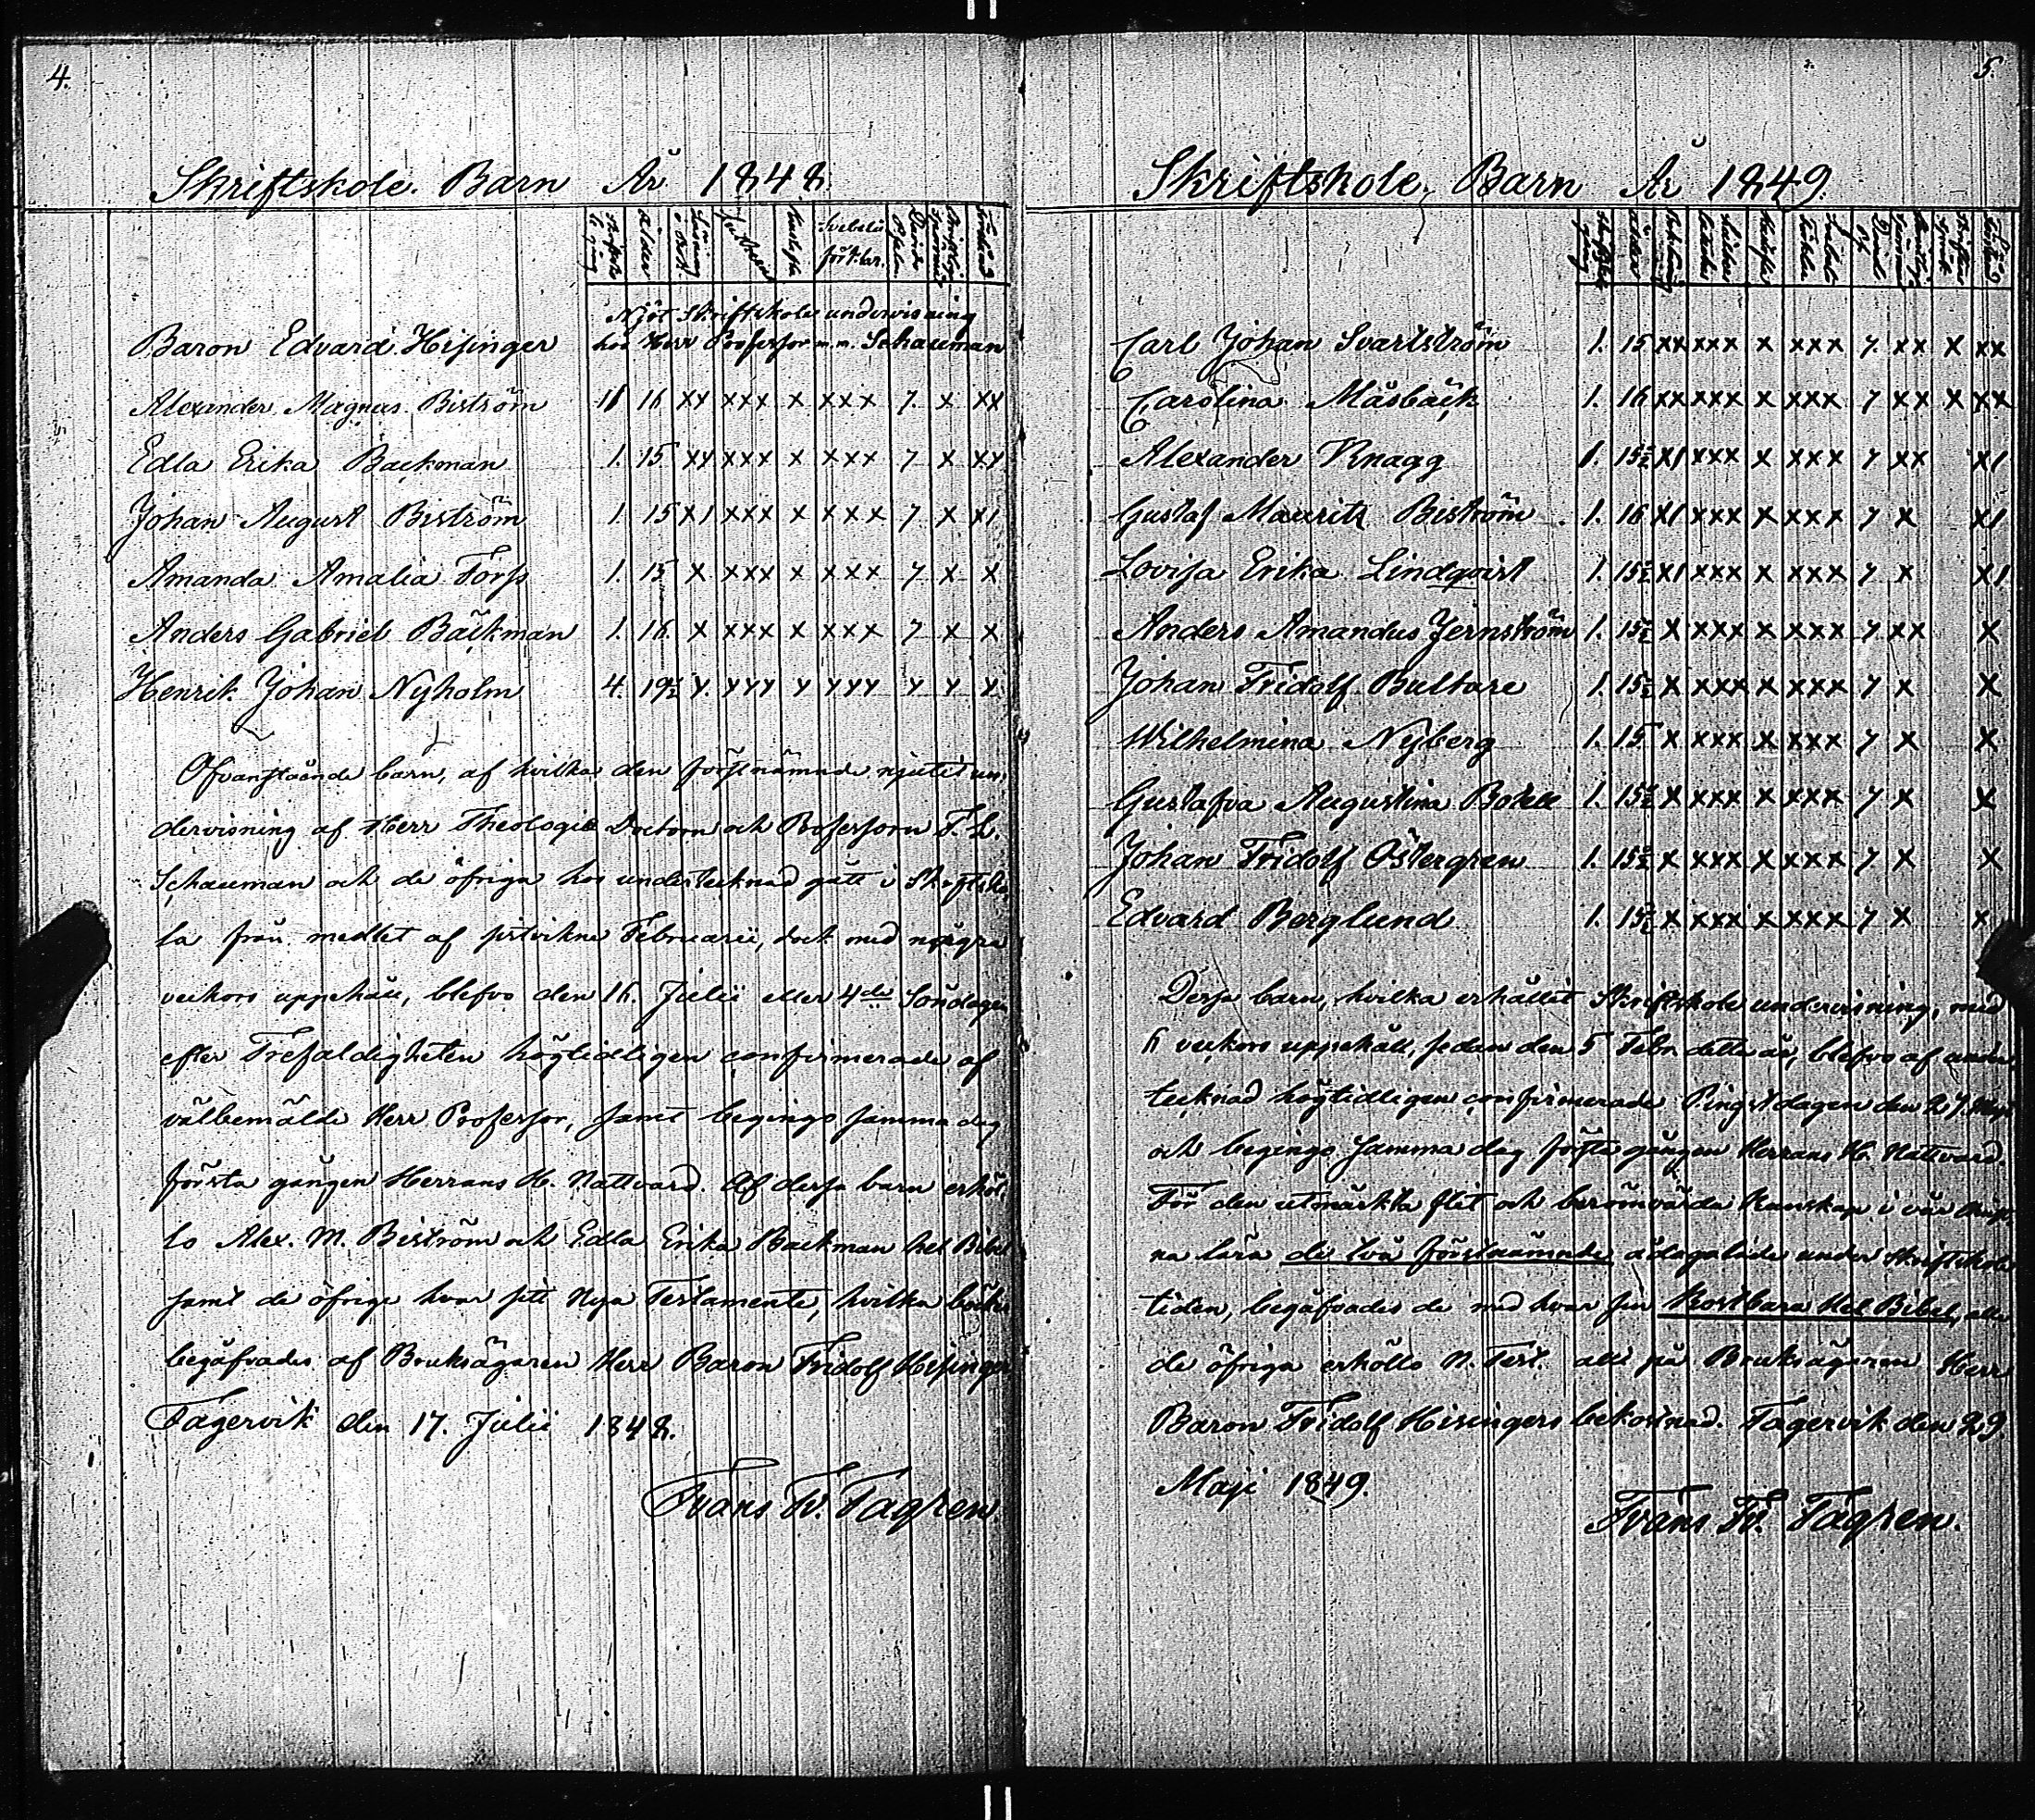 4.
Skriftskole Barn År 1848.
Njöt Skriftskole undervisning
Baron Edvard Hisinger hos Herr Professor m.m. Schauman
Alexander Magnus Biström 1 16 xx xxx x xxx 7. x xx
Edla Erika Backman 1. 15 xx xxx x xxx 7 x xx
Johan August Biström 1. 15 x1 xxx x xxx 7. x x1
Amanda Amalia Forss 1. 15 x xxx x xxx 7 x x
Anders Gabriel Bäckman 1. 16. x xxx x xxx 7 x x
Henrik Johan Nyholm 4. 19½ y. yyy y yyy y y y.
Ofvanstående barn, af hvilka den förstnämnde njutit un-
dervisning af Herr Theologiæ Doctorn och Professorn F. L.
Schauman och de öfriga hos undertecknad gått i Skriftsko-
la från medlet af sistvikne Februarii, dock med några
veckors uppehåll, blefvo den 16. Julii eller 4de Söndagen
efter Trefaldigheten högtidligen confirmerade af
välbemälde Herr Professor, samt begingo samma dag
första gången Herrans H. Nattvard. Af dessa barn erhöl-
lo Alex. M. Biström och Edla Erika Backman hel Bibel
samt de öfrige hvar sitt Nya Testamente, hvilka böcker
begåfvades af Bruksägaren Herr Baron Fridolf Hisinger
Tagervik den 17. Julii 1848.
Frans Fr. Fagren.
5.
Skriftskole Barn År 1849.
Carl Johan Svartström 1. 15 xx xxx x xxx 7. xx x xx
Carolina Måsbäck 1. 16 xx xxx x xxx 7 xx x xx
Alexander Knagg 1. 15½ x1 xxx x xxx 7 xx x1
Gustaf Mauritz Biström 1. 16 x1 xxx x xxx 7 x x1
Lovisa Erika Lindqvist 1. 15½ x1 xxx x xxx 7 x x1
Anders Amandus Jernström 1. 15½ x xxx x xxx 7 xx x
Johan Fridolf Bultare 1. 15½ x xxx x xxx 7 x x
Wilhelmina Nyberg 1. 15 x xxx x xxx 7 x x
Gustafva Augustina 1. 15½ x xxx x xxx 7 x x
Johan Fridolf Östergren 1. 15½ x xxx x xxx 7 x x
Edvard Berglund 1. 15½ x xxx x xxx 7 x x
Dessa barn, hvilka erhållit Skriftskole undervisning, med
6 veckors uppehåll, sedan den 5 Febr. detta år, blefvo af under-
tecknad högtidligen confirmerade Pingstdagen den 27. Maji
och begingo samma dag första gången Herrans H. Nattvard.
För den utmärkta flit och berömvärda kunskap i vår Christ-
na lära de två förstnämnde ådagalade under Skriftskole
tiden, begåfvades de med hvar sin kostbara Hel Bibel, alla
de öfriga erhöllo N. Test. allt på Bruksägaren Herr
Baron Fridolf Hisingers bekostnad. Tagervik den 29
Maji 1849.
Frans Fr. Fagren.